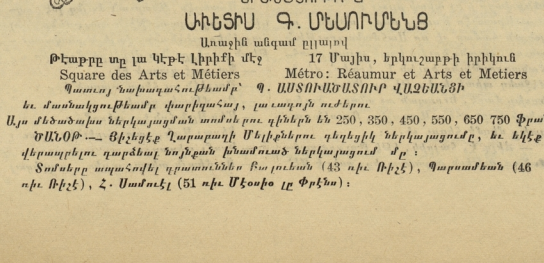 ԱՒԵՏԻՍ Գ. ՄԵՍՈՒՄԵՆՑ
Առաջին անգամ ըլլալով
Թէաթրը տը լա Կէթէ Լիրիքի մէջ 17 Մայիս, երկուշաբթի իրիկուն
Square des Arts et Métiers Métro: Réaumur et Arts et Metiers
Պատուոյ նախագահութեամբ՝ Պ. ԱՍՏՈՒԱԾԱՏՈՒՐ ՎԱԶԵԱՆՑԻ
եւ մասնակցութեամբ փարիզահայ, լաւագոյն ուժերու
Այս մեծածախս ներկայացման տոմսերու գիներն են 250, 350, 450, 550, 650 750 ֆրան
ԾԱՆՕԹ.— Յիշեցէք Ղարաբաղի Մելիքներու գեղեցիկ ներկայացումը, եւ եկէք
վերապրելու դարձեալ նոյնքան խնամուած ներկայացում մը :
Տոմսերը ապահովել գրատուններ Բալուեան (43 ռիւ Ռիշէ), Պարսամեան (46
ռիւ Ռիշէ), Հ. Սամուէլ (51 ռիւ Մէօսիօ լը Փրէնս) :